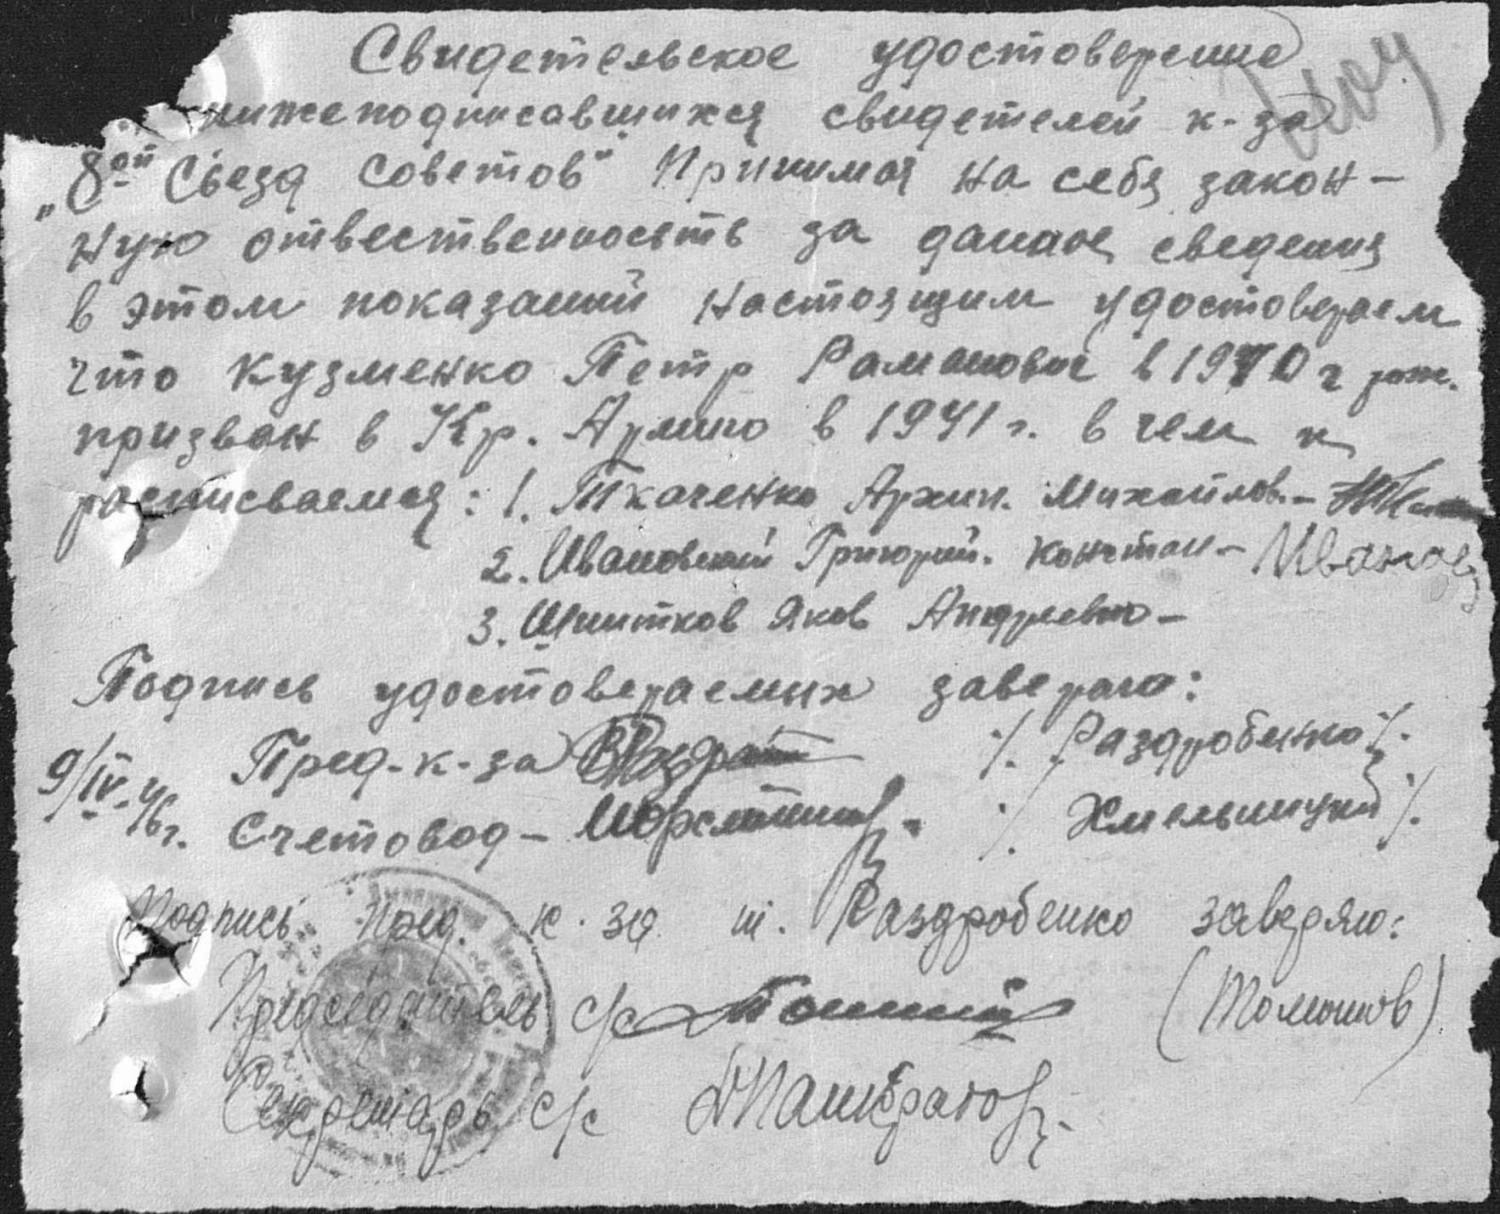 Свидетельское удостоверение
нижеподписавшихся свидетелей к-за
„8ой Съезд Советов" Принимая на себя закон-
ную отвественносьть за даные сведения
в этом показаний настоящим удостовераем
что Кузменко Петр Раманович в 1910 г рож.
призван в Кр. Армию в 1941 г. в чем и
расписваемся: 1. Ткаченко Архип. Михайлов. -
2. Ивановский Григорий. Констан - Иванов
3. Шпитков Яков Андреевич -
Подпись удостовераемых заверяю:
9/IV-46 г. Пред-к-за /. Раздробенко /.
Счетовод - /. Хмельницкий /.
Подпись пред. к-за т. Раздробенко заверяю:
Председатель с/с (Томашов)
Секретарь с/с Панкратов